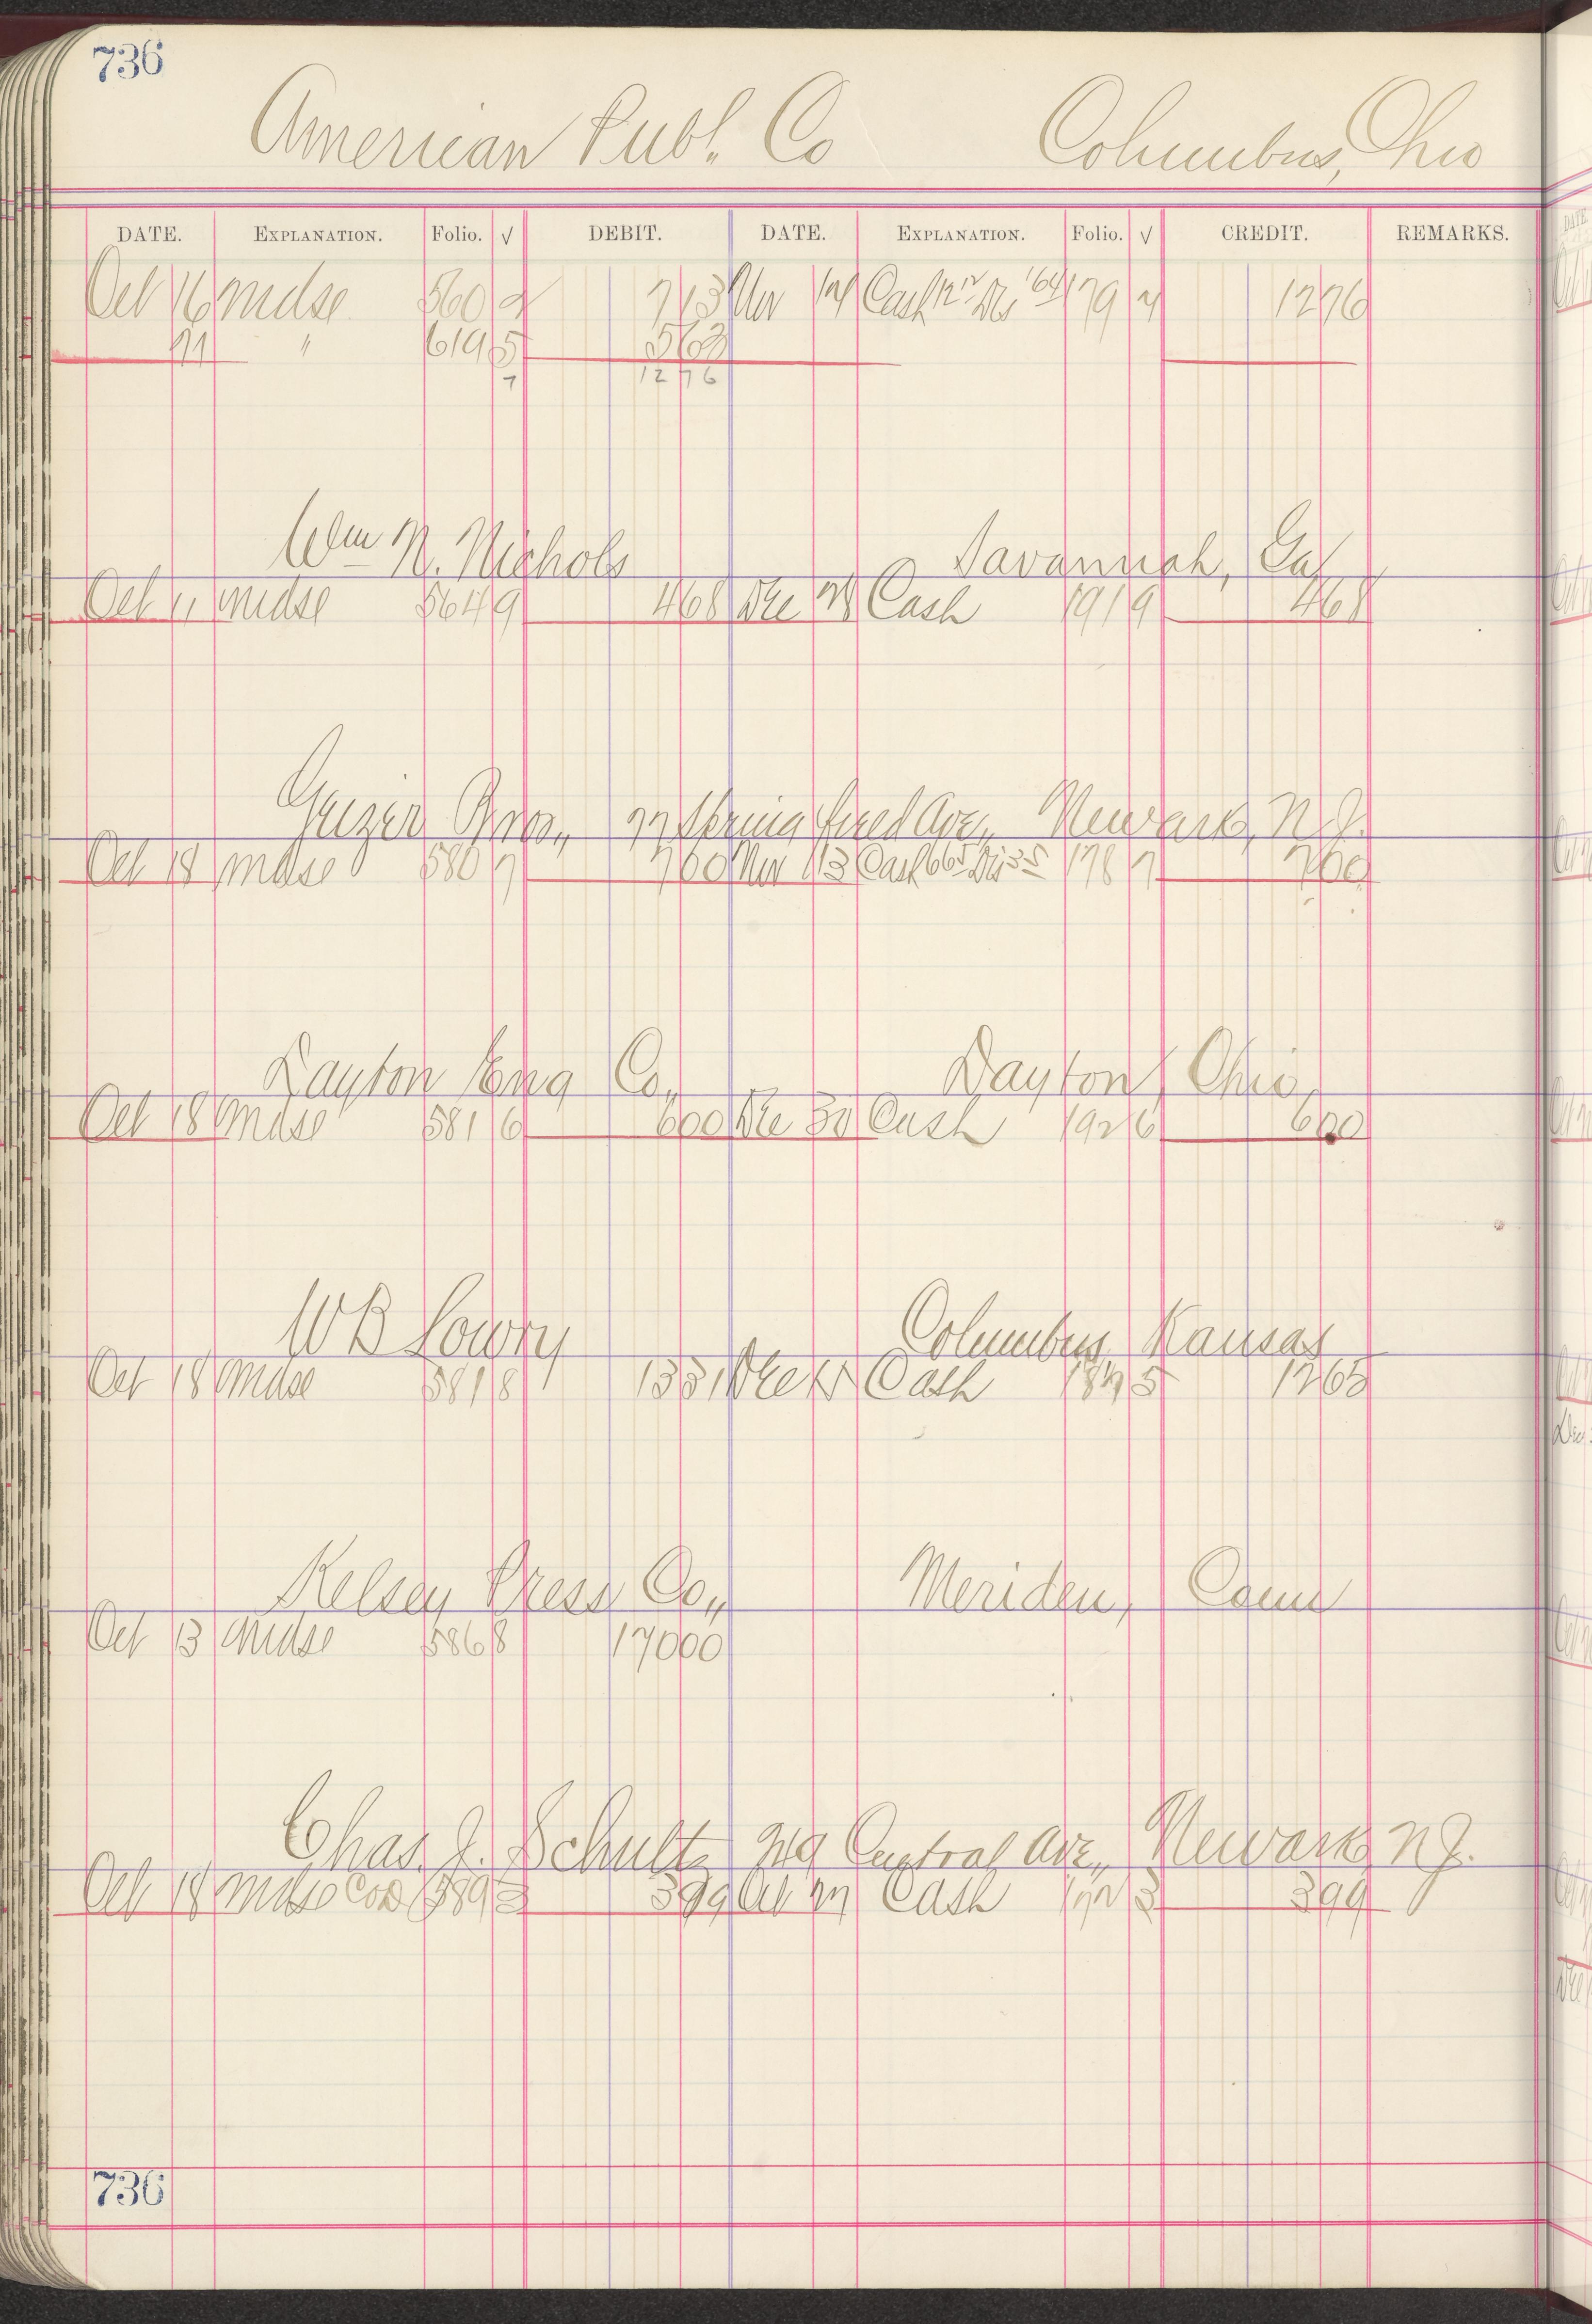 736
American Publ. Co Columbus, Ohio
DATE. EXPLANATION. Folio. √ DEBIT. DATE. EXPLANATION. Folio. √ CREDIT. REMARKS.
Oct 16 mdse 560 2 713 Nov 14 Cash 12 12 Dis 64 179 4 1276
" 619 5 563
7 12 76
Wm N. Nichols Savannah, Ga
Oct 11 mdse 564 9 468 Dec 28 Cash 191 9 468
Bros,, 77 Springfield Ave,, Newark, N.J.
Oct 18 mdse 580 7 700 Nov 13 Cash 665 Dis 35 178 7 700
Dayton Eng Co,, Dayton, Ohio
Oct 18 mdse 581 6 600 Dec 30 Cash 192 6 600
W B Lowry Columbus, Kansas
Oct 18 mdse 581 8 1331 Dec Cash 5 1265
Kelsey Press Co,, Meriden, Conn
Oct 13 mdse 586 8 17000
Chas. J. Schultz Central Ave,, Newark, N.J.
Oct 18 mdse COD 589 3 399 Oct Cash 3 399
736